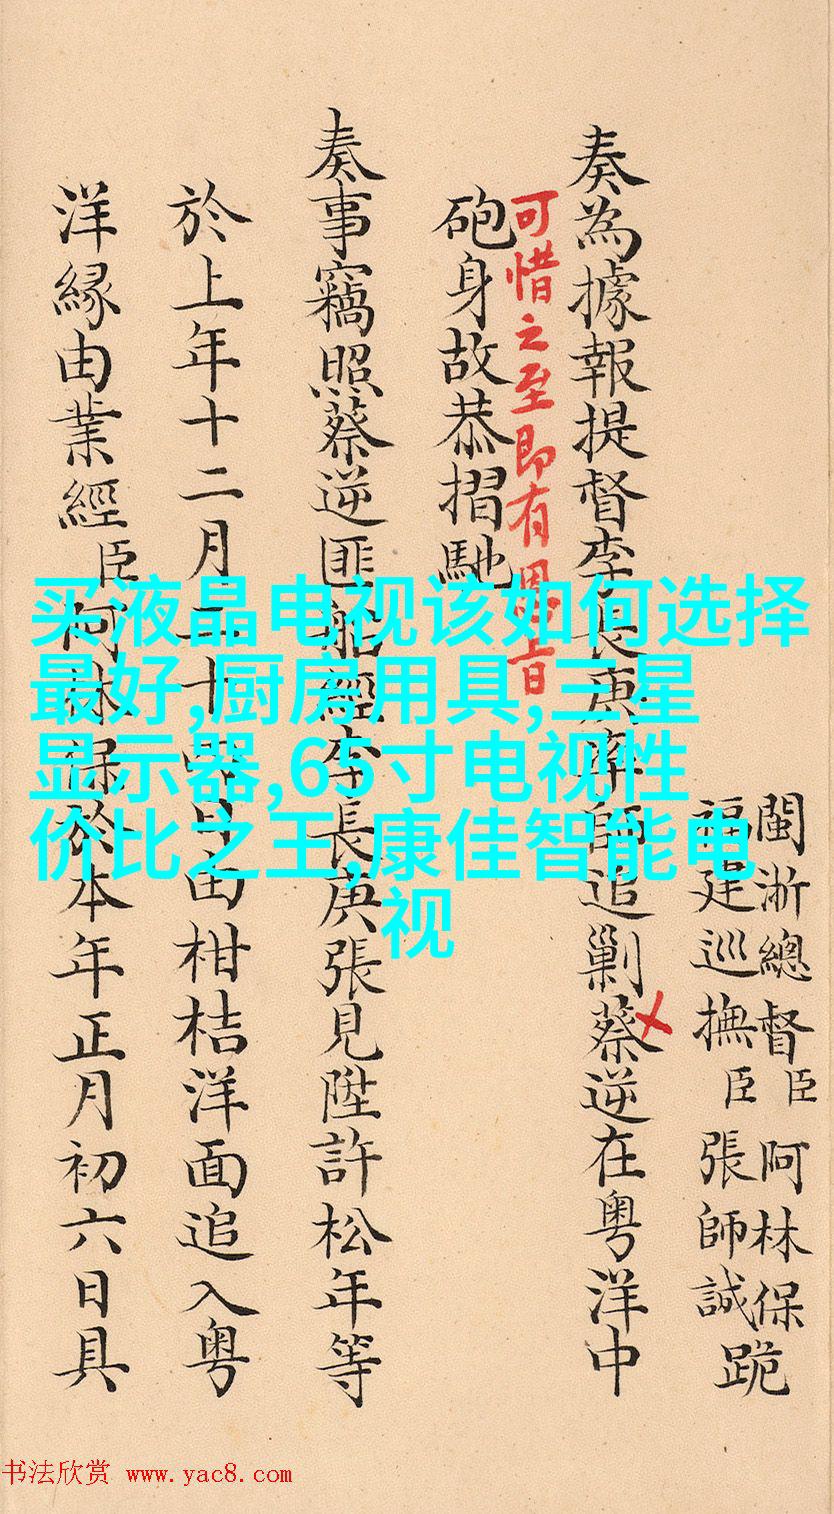 閩浙總督臣阿林保
福建巡撫臣張師誠跪
奏為據報提督李長庚率師追剿蔡逆在粤洋中
可惜之至即有恩旨
砲身故恭摺馳
奏事竊照蔡逆匪船經李長庚張見陞許松年等
於上年十二月二十四日由柑桔洋面追入粤
洋緣由業經臣阿林保於本年正月初六日具
买液晶电视该如何选择
最好,厨房用具,三星
显示器,65寸电视性
价比之王,康佳智能电
视
书法欣赏 www.yac8.com